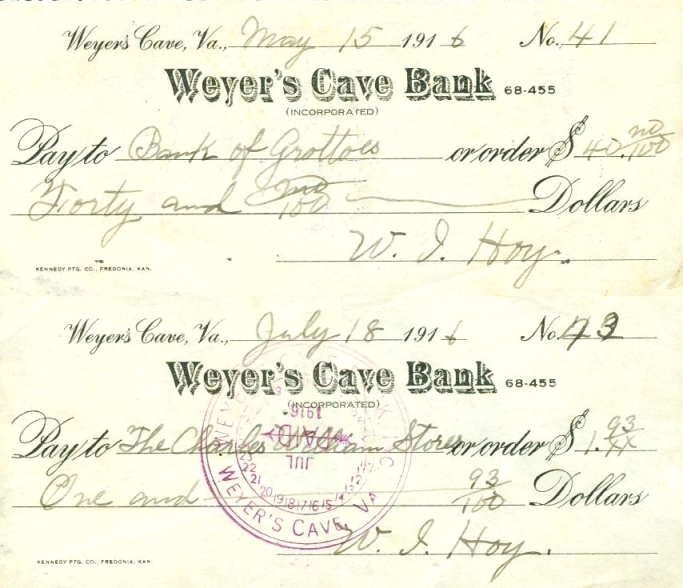 Weyer's Cave, Va., May 15 1916 No. 41
Weyer's Cave Bank 68-455
(INCORPORATED)
Pay to Bank of Grottoes or order $ 40. no/100
Forty and no/100 Dollars
W. I. Hoy.
KENNEDY PTG. CO., FREDONIA, KAN.
Weyer's Cave, Va., July 18 1916 No. 73
Weyer's Cave Bank 68-455
(INCORPORATED)
1916
PAID
JUL
Pay to The Charles William Stores or order $ 1. 93/xx
One and 93/100 Dollars
WEYER'S CAVE, VA
W. I. Hoy.
KENNEDY PTG. CO., FREDONIA, KAN.